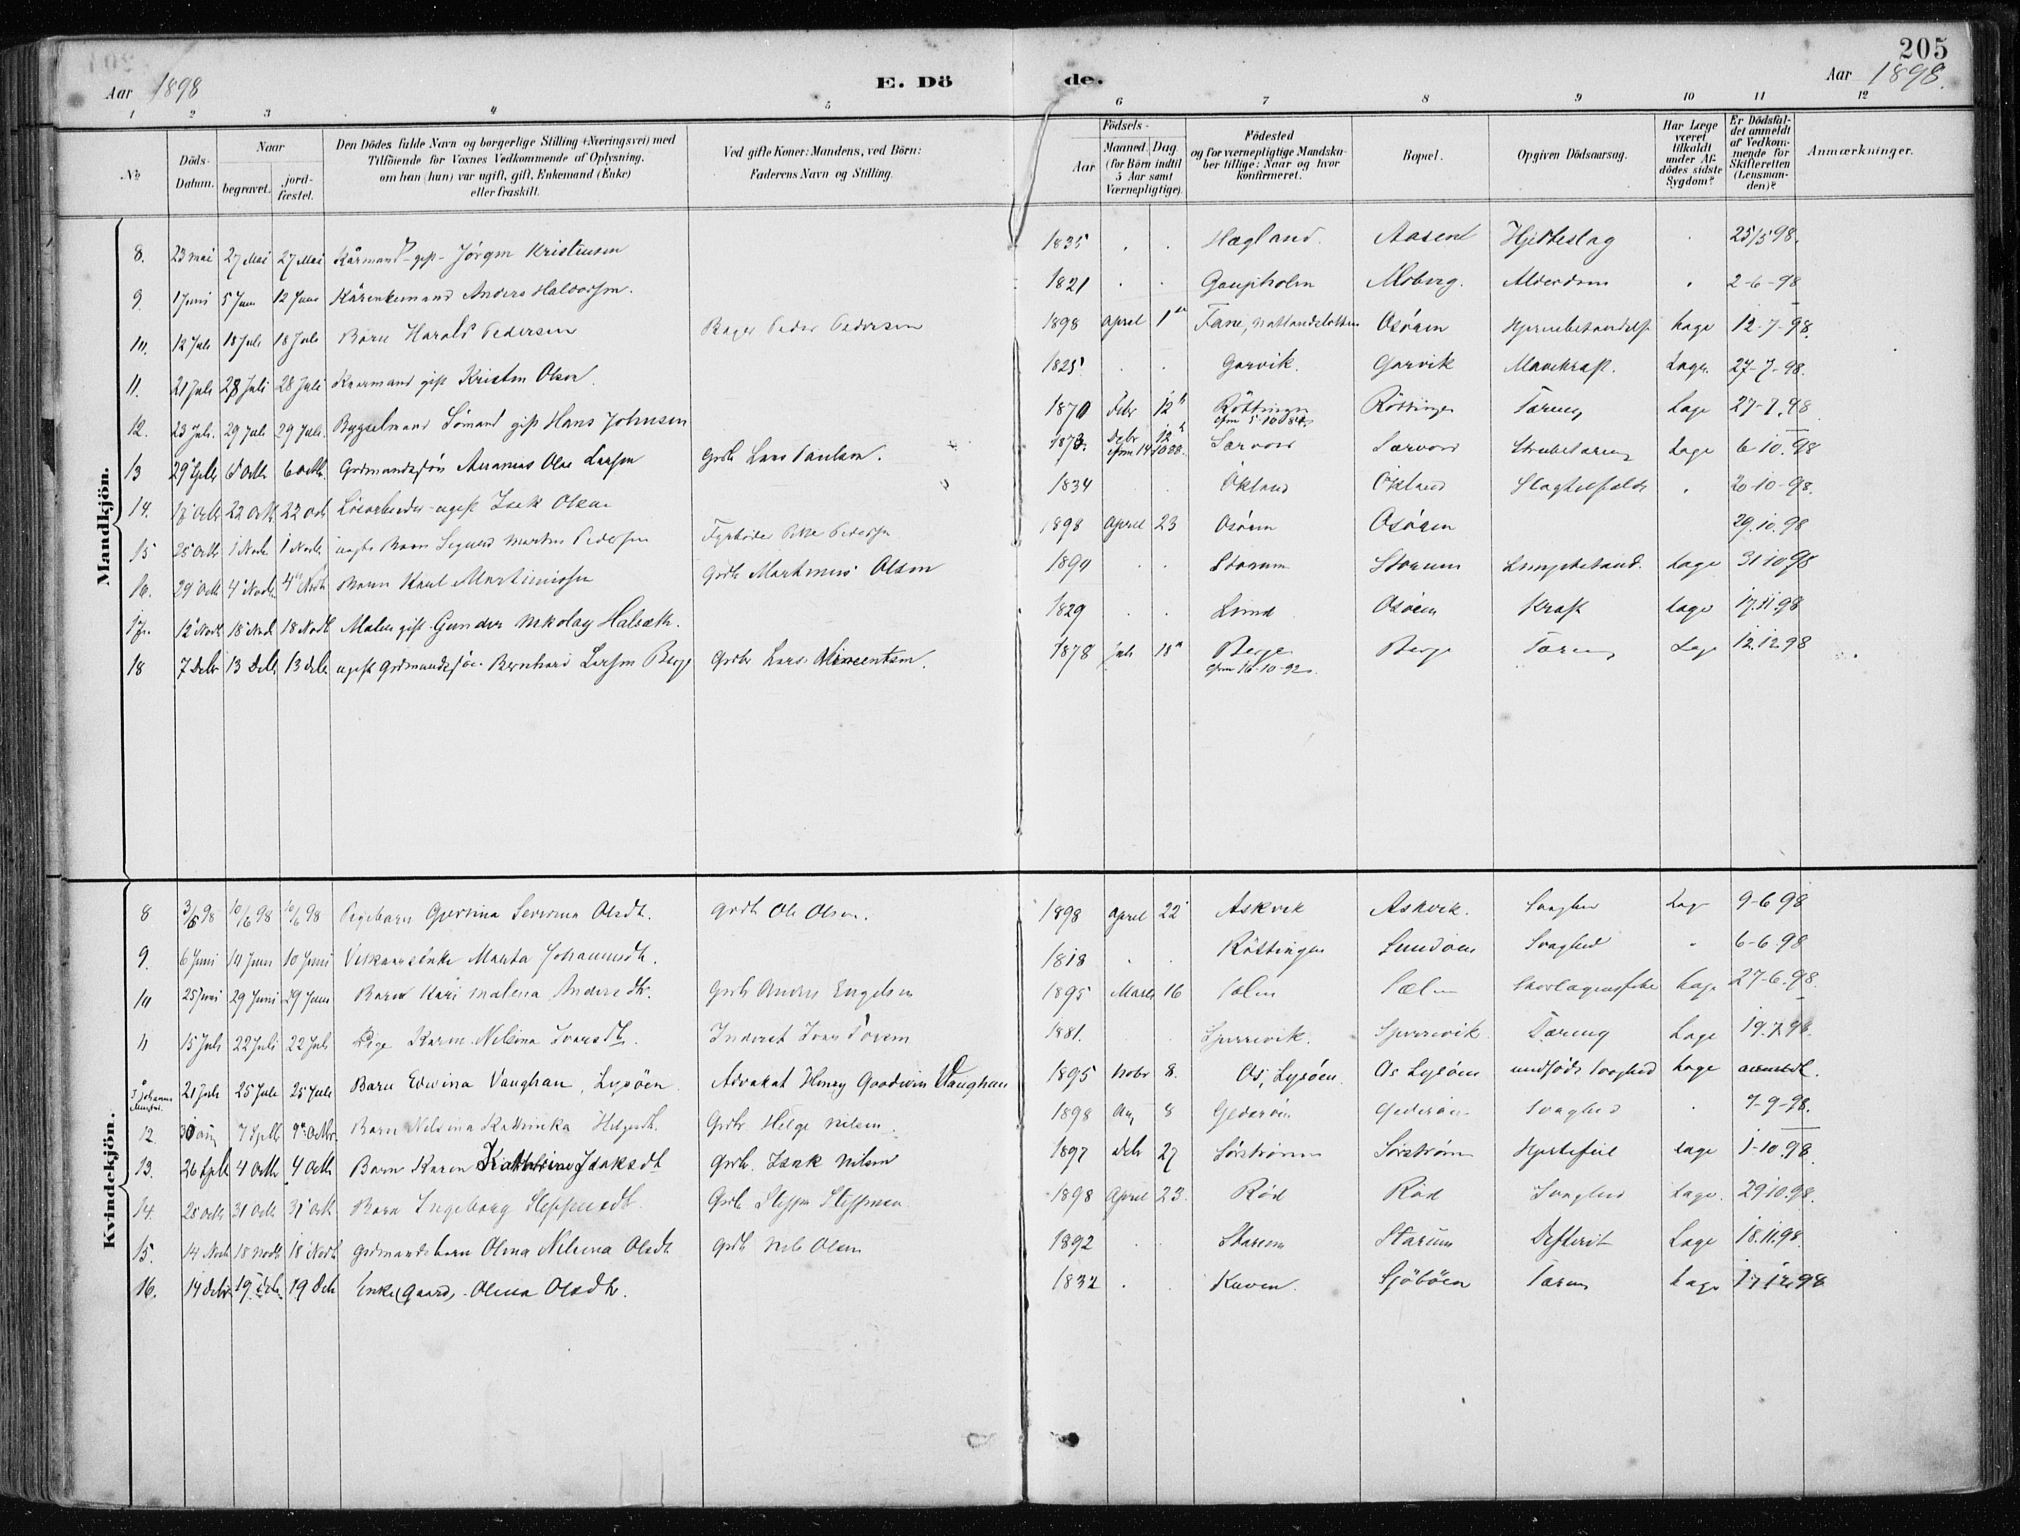 205
Aar 1898
E. Döde.
Aar 1898.
1 2 3 4 5 6 7 8 9 10 11 12
No
Döds-Datum.
Naar
begravet.
jord-fæstet.
Den Dödes fulde Navn og borgerlige Stilling (Næringsvei) med
Tilföiende for Voxnes Vedkommende af Oplysning,
om han (hun) var ugift, gift, Enkemand (Enke)
eller fraskilt.
Ved gifte Koner: Mandens, ved Börn:
Faderens Navn og Stilling.
Födsels-
Aar
Maaned. Dag.
(for Börn indtil
5 Aar samt
Værnepligtige).
Födested
og for værnepligtige Mandska-
ber tillige: Naar og hvor
konfirmeret.
Bopæl.
Opgiven Dödsaarsag.
Har Læge
været
tilkaldt
under Af-
dödes sidste
Sygdom?
Er Dödsfal-
det anmeldt
af Vedkom-
mende for
Skifteretten
(Lensman-
den)?
Anmærkninger.
Mandkjön.
8. 23 mai 27 Mai 27 Mai Kårmand gift Jörgen Kristensen 1835 . . Hægland. Aasen Hjerteslag 25/5 98.
9 1 Juni 5 Juni 12 Juni Kårenkemand Anders Halvorsen. 1821 . . Gaupholm Moberg. Alderdom 2-6-98
10. 12 Juli 18 Juli 18 Juli Barn Harald Pedersen Bager Peder Pedersen 1898 April 1 Fane, Osören Lage 12-7-98.
11. 21 Juli 28 Juli 28 Juli Kaarmand gift Kristen Olsen. 1825 . . Garvik. Garvik Mavekraft. Lage. 27-7-98.
12. 23 Juli. 29 Juli 29 Juli. Bygselmand Sömand gift Hans Johnsen 1870 Febr 12 Röttingen Röttingen Tæring Lage 27-7.98
13 29 Sptb 6 Octb 6 Octb. Grdmandssön Olai Larsen Grdb Lars Paulsen. 1873. Debr 12 Sørvold Strubetæring Lage 6-10.98
14. Octb 22 Octb 22 Octb Lösarbeider ugift Isak Olsen 1834 . . Økland Økland 20-10-98.
15 25 Octb 1 Novb. 1 Novb. Barn Sigurd Martin Pedersen Pedersen 1898 April 23 Osören Osören 29.10.98
16. 29 Octb 4 Novb. 4 Novb Barn Karl Martinussen Grdb Martinus Olsen . . Storum Storum Lage 31-10-98
17. 12 Novb 18 Novb 18 Novb Maler gift Gunder Nikolay Halsæth. 1829 . . Lund Osören Kræft Lage 17.11.98
18 7 Debr 13 Deb. 13 Deb. ugift Grdmandssön Bernhard Larsen Berge Grdbr Lars Vincentsen. 1878 Juli 18 Berge Berge Tæring Lage 12.12.98
cfm 16-10-92.
Kvindekjön.
8 3/6 98 10/6 98 10/6 98 Pigebarn Gjertina Severina Olsdt. Grdb Ole Olsen. 1898 April 22 Askvik Askvik. Svaghed Lage 9-6 98
9. 6 Juni 10 Juni 10 Juni Marta Johannesdt. 1818 . Röttingen Svaghed 6-6 98
10 25 Juni 29 Juni 29 Juni Barn Kari Malena Andersdt. Grdb Anders Engelsen 1895 Marts 16 Sælen Sælen Lage 27-6.98.
11 15 Juli 22 Juli 22 Juli Pige Karen Nilsina Ivarsdt. Inderst Ivar 1881. Spurrevik. Spurrevik. Tæring Lage 19.7.98.
21 Juli 25 Juli 25 Juli Barn Edwina Vaughan, Lysöen. Advokat Henry Goodwin Vaughan 1895 Nobr 8. Os, Lysöen. Os Lysöen medfødt Svaghed Lage anmeldt.
12. 30 aug 7 Sptb. 9 Octbr. Barn Nilsina Kathrinka Helgesdt. Grdbr Helge Nilsen 1898 Aug 8 Gederöen Gederöen Svaghed 7-9-98.
13. 26 Sptb 4 Octb 4 Octb Barn Karen Kathrine Isaksdt Grdb. Isak Nilsen 1897 Deb 27 Sörströnen Sörströnen Hjertefeil Lage 1-10.98.
14. 25 Octb 31 Octb 31 Octb Barn Ingeborg Steffensdt. Grdb Steffen Steffensen 1898 April 23. Röd Röd Svaghed Lage. 29.10.98.
15. 14 Novb 18 Novb 18 Novb Grdmandsbarn Olina Nilsina Olsdt Grdb Nils Olsen 1892 . . Storum Storum Difterit Lage 18.11.98.
16. 14 Debr 19 Deb. 19 Deb Enke (Gaard) Olina Olsdt. 1832 . . Kuven. Sjöböen Tæring Lage 17.12.98